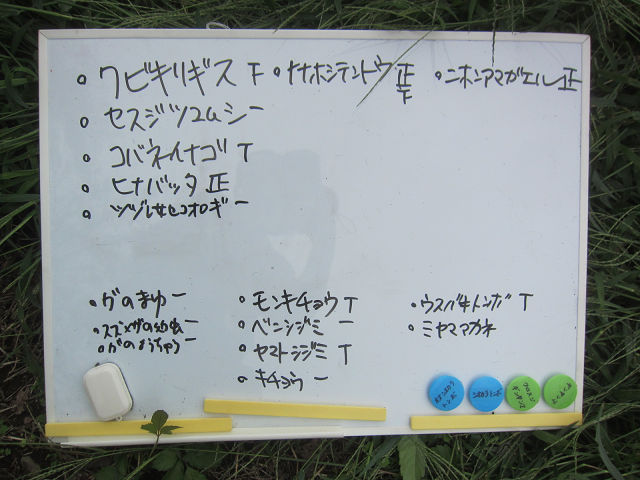 クビキリギス 下
ナナホシテントウ 正下
ニホンアマガエル 正
セスジツユムシ 一
コバネイナゴ T
ヒナバッタ 正
ツヅレサセコオロギ 一
ガのまゆ 一
スズメガの幼虫 一
ガのようちゅう 一
モンキチョウ T
ベニシジミ 一
ヤマトシジミ T
キチョウ 一
ウスバキトンボ T
ミヤマアカネ